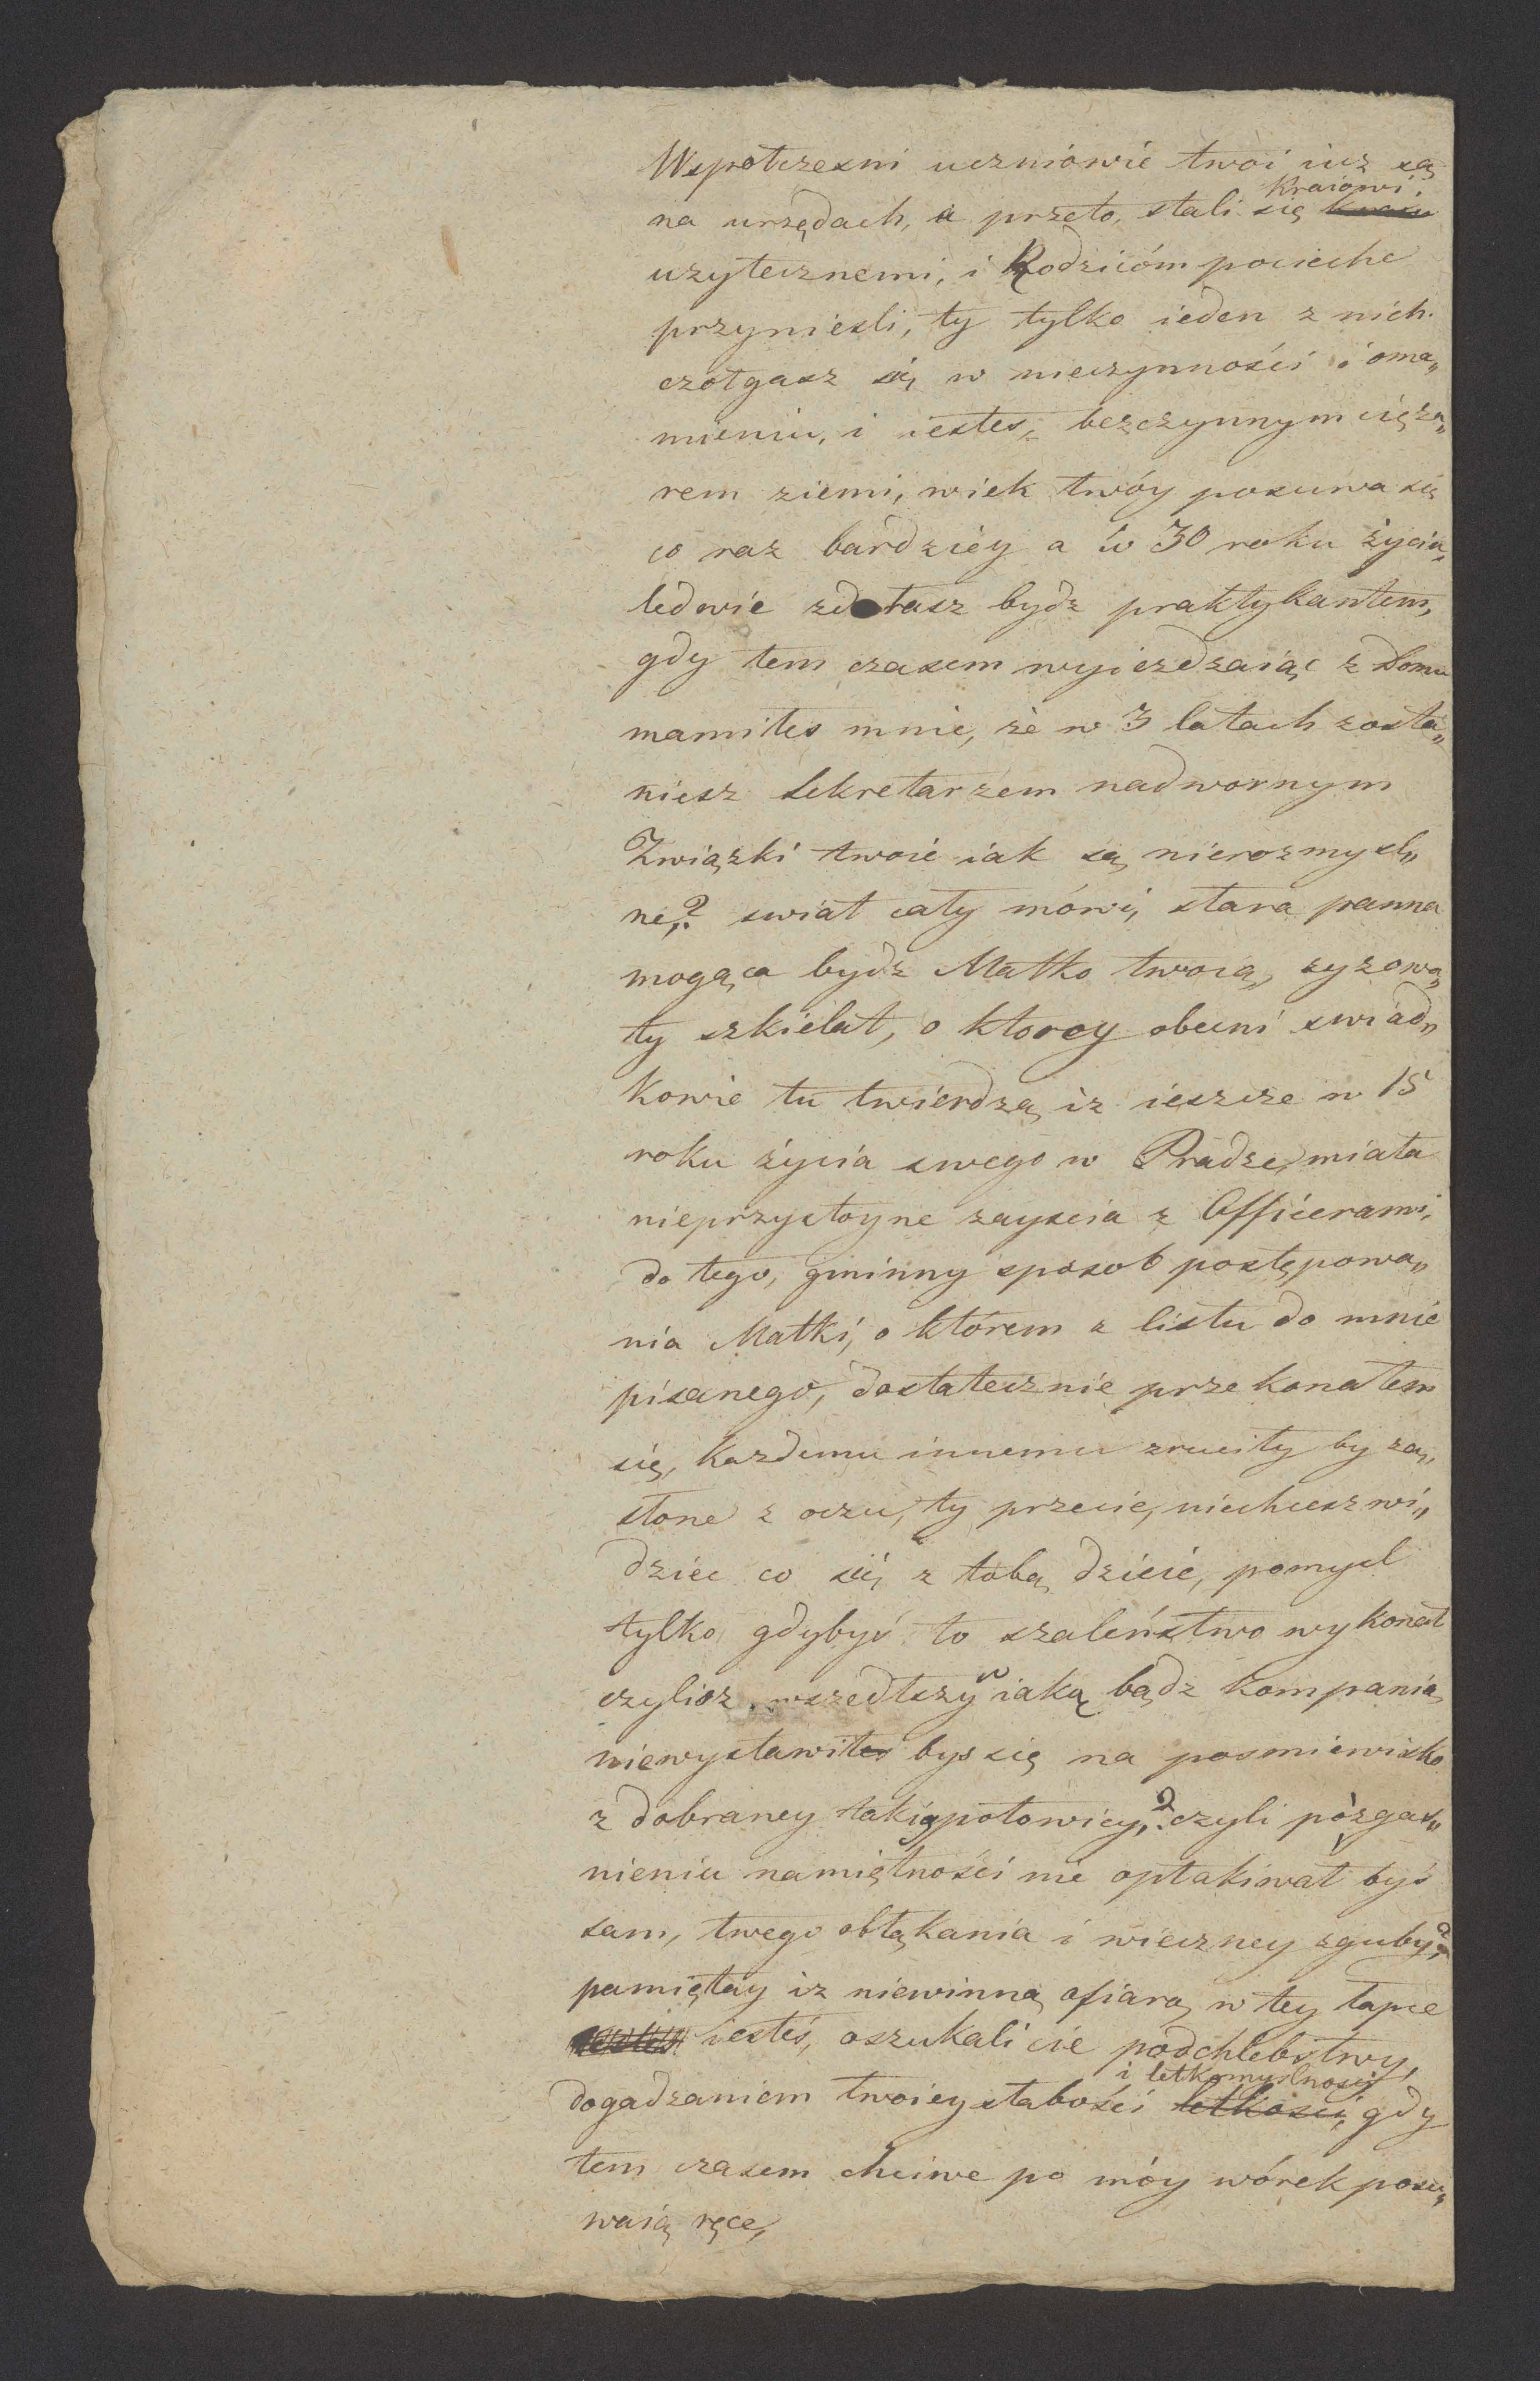 Wspołczesni uczniowie twoi iuz są
na urzędach, a przeto, stali się kraiu Kraiowi
uzytecznemi, i Rodzicóm pocieche
przyniesli, ty tylko ieden z nich
czołgasz się w nieczynności i oma„
mieniu, i iestes, bezczynnym cięża„
rem ziemi, wiek twóy posuwa się
co raz bardziéy a w 30 roku życia,
ledwie zdołasz bydz praktykantem,
gdy tem czasem wyiezdzaiąc z Domu
mamiłes mnie, że w 3 latach zosta„
niesz Sekretarzem nadwornym
Związki twoie iak są nierozmysl„
ne,? swiat cały mówi, stara panna
mogąca bydz Matko twoią, zyzowa„
ty szkielet, o ktorey obecni swiad„
kowie tu twierdzą, iz ieszcze w 15
roku życia swego w Pradze, miała
nieprzystoyne zayscia z Officerami,
do tego, gminny sposob postępowa„
nia Matki, o którem z listu do mnie
pisanego, dostatecznie przekonałem
się, kazdemu innemu zruciły by za„
słone z oczu, ty przecie, niechcesz wi„
dziec co się z tobą dzieie, pomysl
tylko gdybyś to szaleństwo wykonał
czylisz wszedłszy w iaką bądz kompanią
niewystawiłes bys się na posmiewisko
z dobraney takię połowicy,? czyli po zgas„
nieniu namiętności nie opłakiwał byś
sam, twego obłąkania i wieczney zguby,?
pamiętay iz niewinną ofiarą w tey łapce
iestes iesteś, oszukali cie podchlebstwy,
dogadzaniem twoiey słabości letkości, i letkomyslności, gdy
tem czasem chciwe po móy wórek posu„
waią ręce,